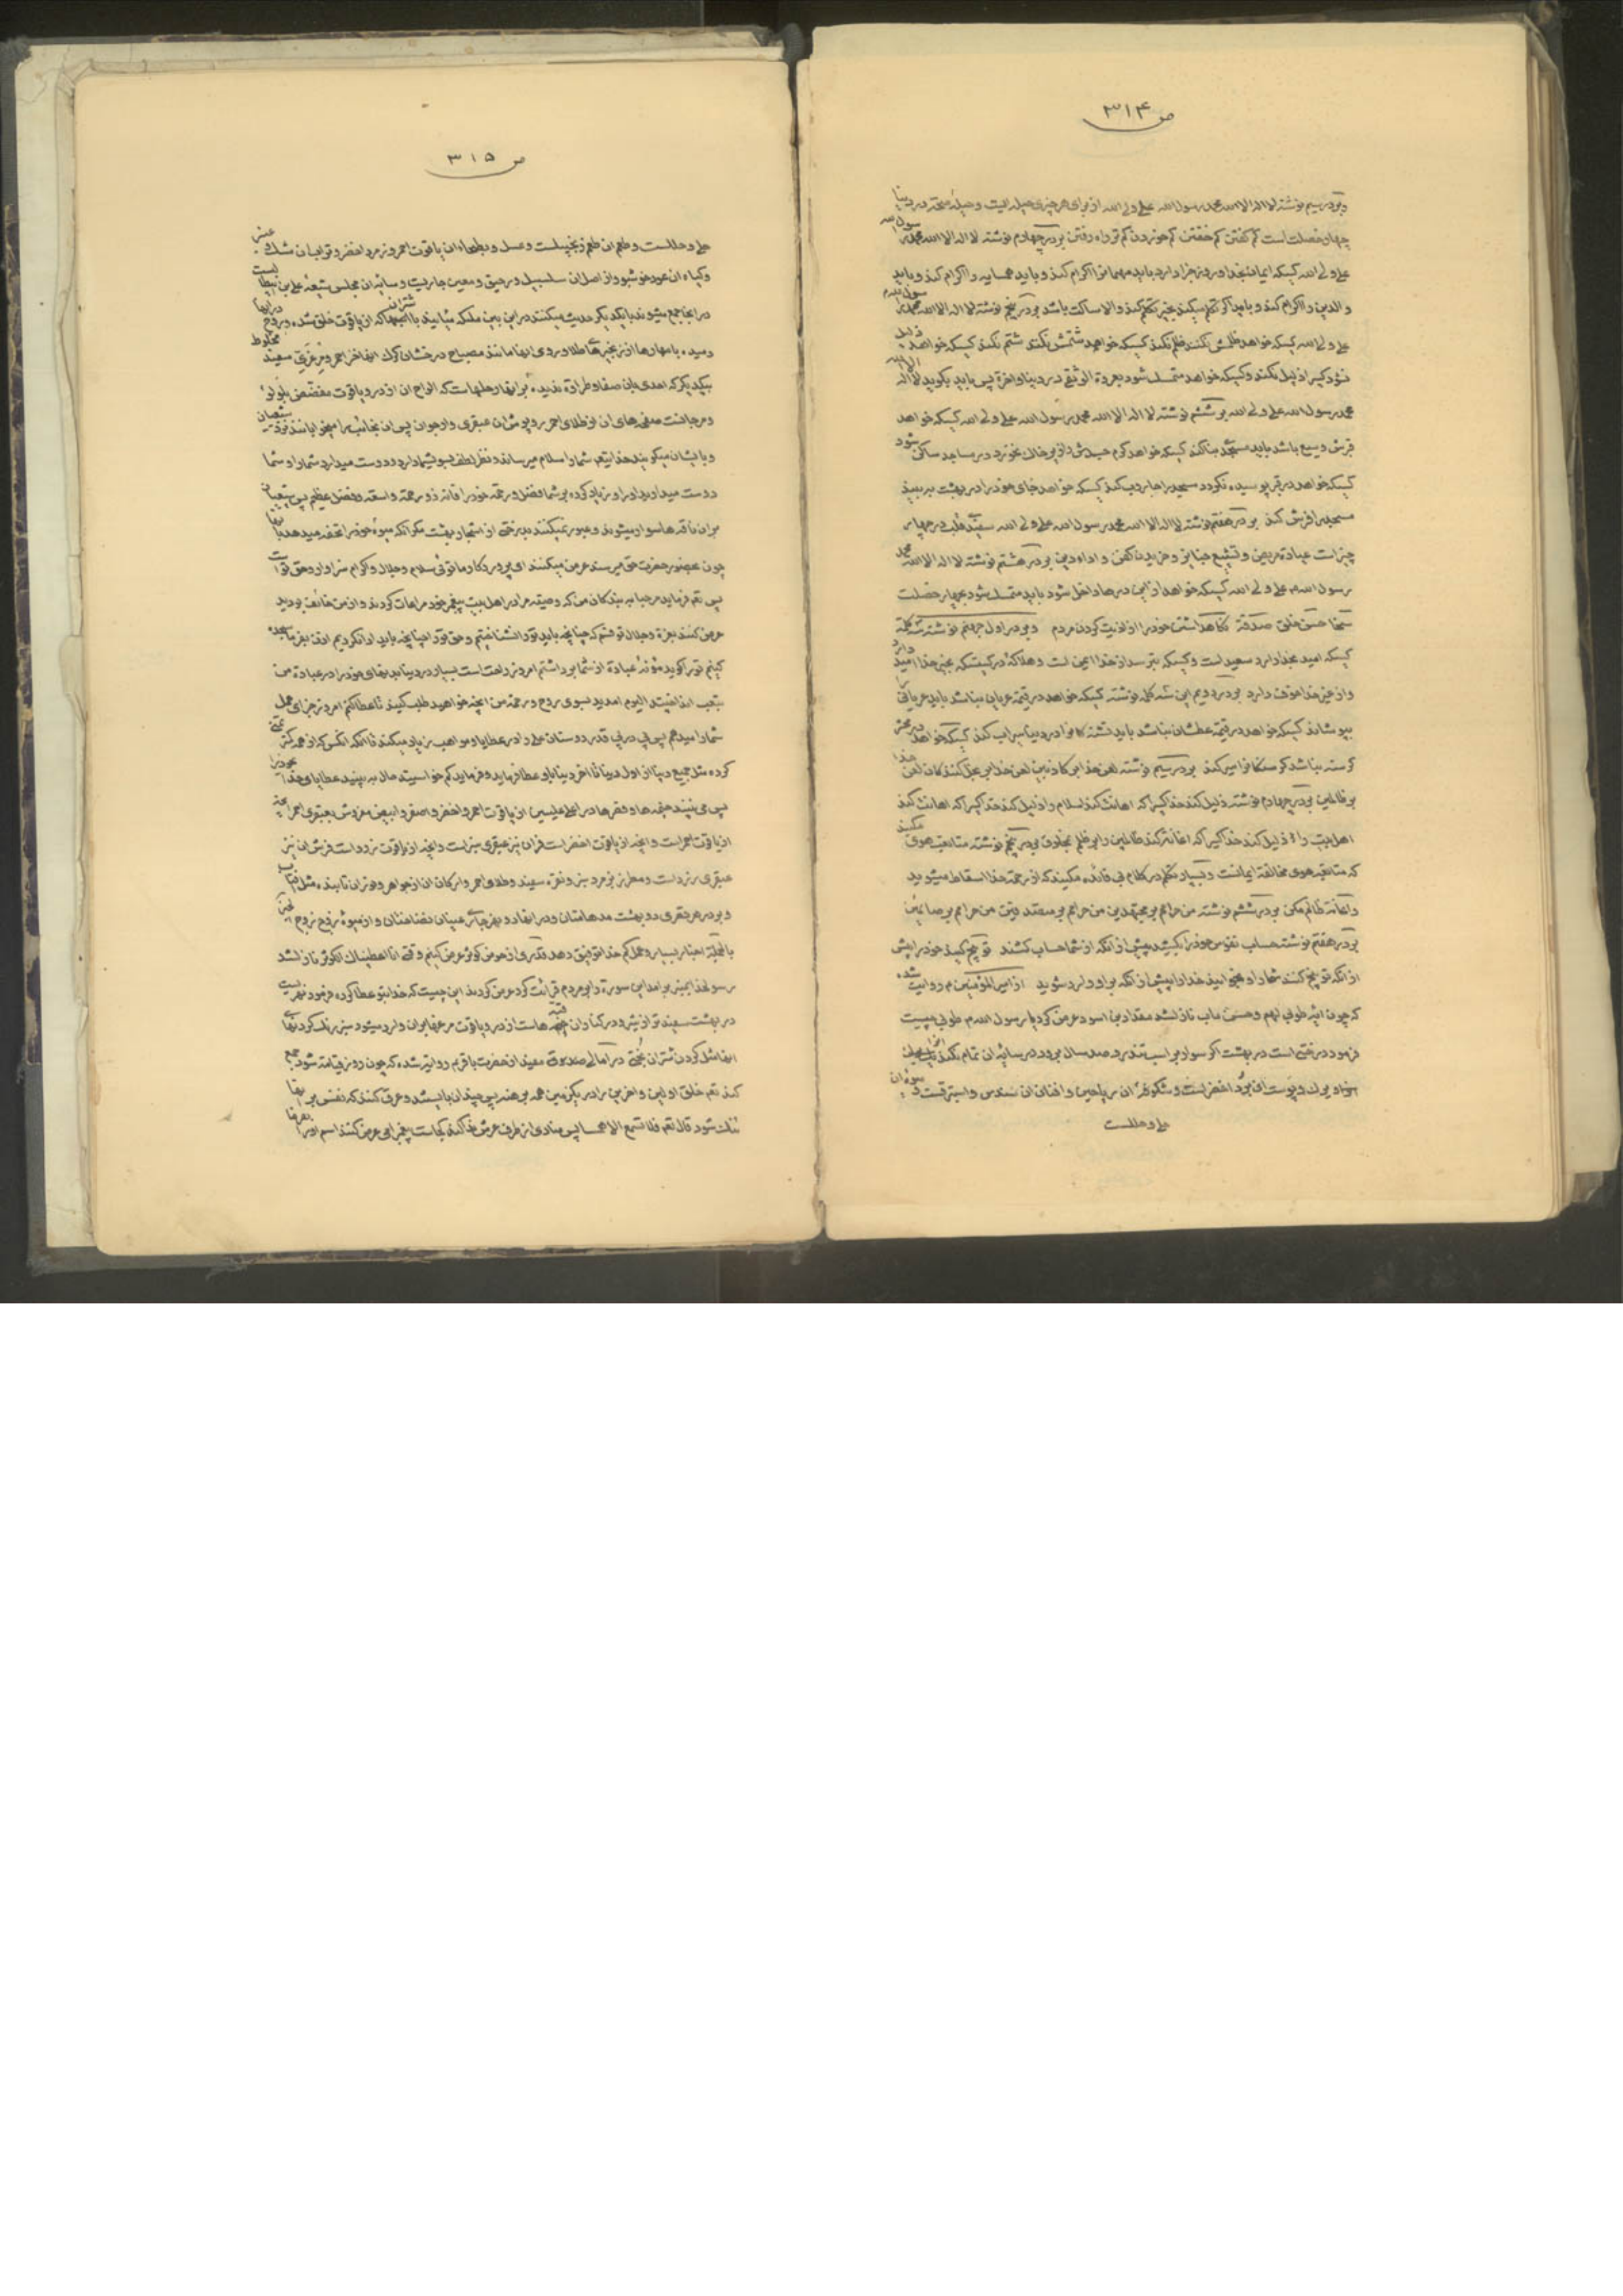 ص ۳۱۴
و بر در سیم نوشته لا اله الا الله محمد رسول الله علی ولی الله از برای هر چیزی حیله ایست و حیله صحة در دنیا
چهار خصلت است کم گفتن کم خفتن کم خوردن کم راه رفتن بر در چهارم نوشته لا اله الا الله محمد رسول الله
علی ولی الله کسیکه ایمان بخدا و روز جزا دارد باید مهمانرا اکرام کند و باید همسایه را اکرام کند و باید
والدین را اکرام کند و باید اگر تکلم میکند بخیر تکلم کند والا ساکت باشد بر در پنجم نوشته لا اله الا الله محمد رسول الله
علی ولی الله کسیکه خواهد ظلمش نکنند ظلم نکند کسیکه خواهد شتمش نکنند شتم نکند کسیکه خواهد ذلیل
نشود کسیرا ذلیل نکند و کسیکه خواهد متمسک شود بعروة الوثقی در دنیا و اخرة پس باید بگوید لا اله الا الله
محمد رسول الله علی ولی الله بر در ششم نوشته لا اله الا الله محمد رسول الله علی ولی الله کسیکه خواهد
قبرش وسیع باشد باید مسجد بنا کند کسیکه خواهد کرم جسدش را در زیر خاک نخورد در مساجد ساکن شود
کسیکه خواهد در قبر پوسیده نگردد مسجد را جاروب کند کسیکه خواهد جای خود را در بهشت ببیند
مسجد را فرش کند بر در هفتم نوشته لا اله الا الله محمد رسول الله علی ولی الله سفیدی قلب در چهار
چیز است عیادة مریض و تشییع جنایز و خریدن کفن و اداء دین بر در هشتم نوشته لا اله الا الله محمد
رسول الله علی ولی الله کسیکه خواهد از این درها داخل شود باید متمسک شود بچهار خصلت
سخا حسن خلق صدقة نگاهداشتن خود را از اذیت کردن مردم و بر در اول جهنم نوشته سه کلمة
کسیکه امید بخدا دارد سعید است و کسیکه بترسد از خدا ایمن است و هلاک شونده کسیستکه بغیر خدا امید دارد
و از غیر خدا خوف دارد بر در دویم این سه کلمه نوشته کسیکه خواهد در قیمة عریان نباشد باید عریانرا
بپوشاند کسیکه خواهد در قیمة عطشان نباشد باید تشنه کانرا در دنیا سیراب کند کسیکه خواهد در محشر
گرسنه نباشد گرسنگانرا سیر کند بر در سیم نوشته لعن خدا بر کاذبین لعن خدا بر بخل کنندگان لعن خدا
بر ظالمین بر در چهارم نوشته ذلیل کند خدا کسیرا که اهانت کند اسلام را ذلیل کند خدا کسیرا که اهانت کند
اهلبیت را ذلیل کند خدا کسیرا که اعانة کند ظالمین را بر ظلم بمخلوق بر در پنجم نوشته متابعت هوی مکنید
که متابعة هوی مخالفة ایمانست و بسیار تکلم در کلام بی فائده مکنید که از رحمة خدا اسقاط میشوید
و اعانة ظالم مکن بر در ششم نوشته من حرامم بر مجتهدین من حرامم بر متصدقین من حرامم بر صائمین
بر در هفتم نوشته حساب نفوس خود را بکشید پیش از آنکه از شما حساب کشند توبیخ کنید خود را پیش
از آنکه توبیخ کنند شما را و بخوانید خدا را پیش از آنکه بر او وارد شوید از امیر المؤمنین م روایت شده
که چون ایه طوبی لهم و حسن ماب نازل شد مقداد بن اسود عرض کرد یا رسول الله م طوبی چیست
فرمود درختی است در بهشت اگر سواره بر اسب تندرو صد سال برود در سایه ان تمام نکند
و برگ و پوست ان برد اخضر است و شکوفه ان ریاحین و افنان ان سندس و استبرقست و میوه ان
حلی و حللست
ص ۳۱۵
حلی و حللست و طعم ان طعم زنجبیلست و عسل و بطحاء ان یاقوت احمر و زمرد اخضر و تراب ان مشک و عنبر
و گیاه ان عود خوشبو و از اصل ان سلسبیل و رحیق و معین جاریست و سایه ان مجلس شیعه علی بن ابیطالب است
در انجا جمع میشوند با یکدیگر حدیث میکنند در این بین ملئکه میایند با شتران که از یاقوت خلق شده و روح در انها
دمیده با مهارها از زنجیرهای طلا و روی انها مانند مصباح درخشان کرک انها خز احمر و مرعزی سفید مخلوط
بیکدیگر که احدی بان صفا و طراوة ندیده بر انها رحلهاست که الواح ان از در و یاقوت مفضض بلؤلؤ
و مرجانست صفحه های ان از طلای احمر روپوش ان عبقری و ارجوان پس ان نجائب را میخوابانند نزد شیعیان
و بایشان میگویند خدایتعم شما را سلام میرساند و نظر لطف بسوی شما دارد و دوست میدارد شما را و شما
دوست میدارید او را و زیاد کرده بر شما فضل و رحمة خود را فانه ذو رحمة واسعة و فضل عظیم پس شیعیان
بر ان ناقه ها سوار میشوند و عبور نمیکنند بدرختی از اشجار بهشت مگر آنکه میوهٔ خود را تحفه میدهد بانها
چون بحضور حضرت حق میرسند عرض میکنند ای پروردگار ما توئی سلام و جلال و اکرام سزاوار و حق تو است
پس تعم فرماید مرحبا به بندگان من که وصیته مرا در اهل بیت پیغمبر خود مراعات کردند و از من خائف بودید
عرض کنند بعزة و جلال تو قسم که چنانچه باید تو را نشناختیم و حق تو را چنانچه باید ادا نکردیم اذن بفرما سجده
کنیم تو را گوید مؤنهٔ عبادة از شما برداشتم امروز راحت است بسیار در دنیا بدنهای خود را در عبادة من
بتعب انداختید الیوم امدید بسوی روح و رحمة من انچه خواهید طلب کنید تا عطا کنم امروز جزای عمل
شما را نمیدهم پس پی در پی قدر دوستان علی را در عطایا و مواهب زیاد میکند تا آنکه انکس که از همه کمتر تمنی
کرده مثل جمیع دنیا از اول دنیا تا اخر دنیا باو عطا فرماید و فرماید کم خواستید حال به بینید عطایای خدا را
پس می بینند خیمه ها و قصرها در اعلی علیین از یاقوت احمر و اخضر و اصفر و ابیض مفروش بعبقری احمر انچه
از یاقوت احمر است و انچه از یاقوت اخضر است فرش ان نیز عبقری سبز است و انچه از یاقوت زرد است فرش ان نیز
عبقری زرد است و مطرز بزمرد سبز و نقره سفید و طلای احمر و ارکان ان از جواهر و نور ان تابنده مثل افتاب
و بر در هر قصری دو بهشت مدهامتان و در انها دو نهر جاری عینان نضاختان و از هر میوهٔ زوج زوج
بالجملة اخبار بسیار و عمل کم خدا توفیق دهد قدری از حوض کوثر عرض کنیم وقتی انا اعطیناک الکوثر نازل شد
رسولخدا بمنبر بر امد این سورة را بر مردم قرائت کرد عرض کردند این چیست که خدا بتو عطا کرده فرمود نهریست
در بهشت سفیدتر از شیر و در کنار ان قبه هاست از در و یاقوت مرغها بر ان وارد میشود سبز رنگ گردنهای
انها مثل گردن شتران بختی در امالی صدوق و مفید از حضرت باقر م روایة شده که چون روز قیامة شود جمع
کند تعم خلق اولین و اخرین را در یک زمین همه برهنه پس چندان بایستند و عرق کنند که نفس بر انها
تنک شود قال تعم فلا تسمع الا همسا پس منادی از طرف عرش ندا کند کجاست پیغمبر امی عرض کنند اسم او را